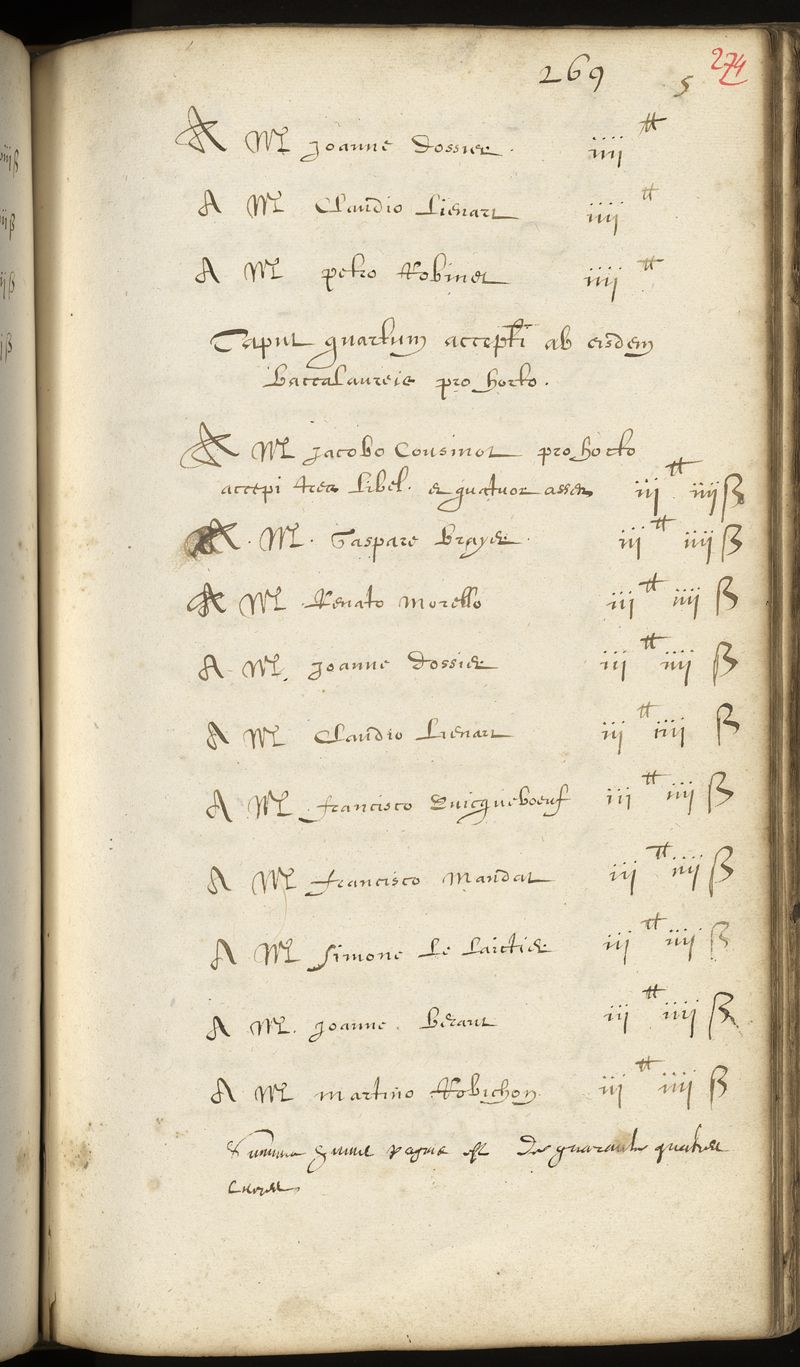 269
5
274
A Mº Joanne Dossier. iiij ₶
A Mº Claudio Lienart iiij ₶
A Mº petro Robinet iiij ₶
Caput quartum accepti ab eisdem
Baccalaureis pro horto.
A Mº Jacobo Cousinot pro horto
accepi tres libel. et quatuor asses iij ₶ iiij ß
A. Mº. Gaspare Brayer. iij ₶ iiij ß
A Mº Renato Morello iij ₶ iiij ß
A Mº. Joanne Dossier iij ₶ iiij ß
A Mº Claudio Lienart iij ₶ iiij ß
A Mº Francisco Quicqueboeuf iij ₶ iiij ß
A Mº Francisco Mandat iij ₶ iiij ß
A Mº Simone Le Laictier iij ₶ iiij ß
A Mº. Joanne Berant iij ₶ iiij ß
A Mº martino Robichon iij ₶ iiij ß
Summa pagine est de quarante quatre